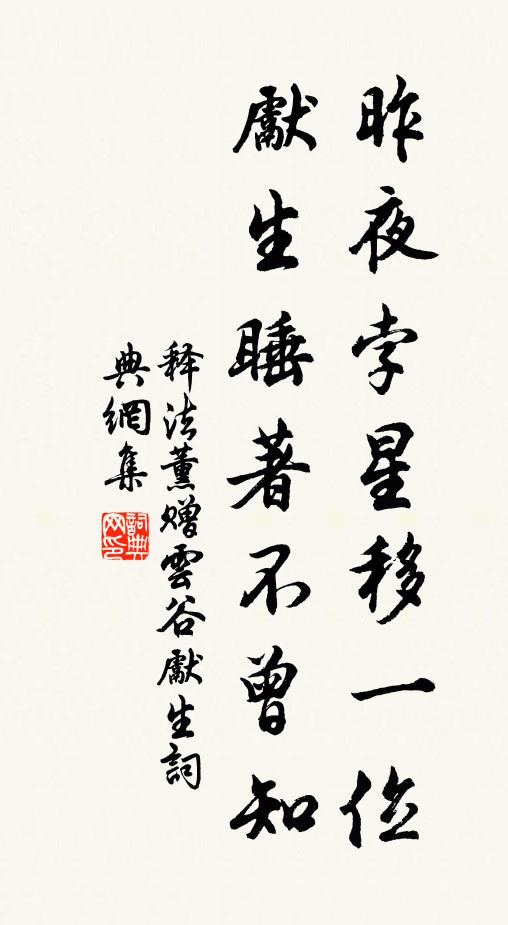 昨夜孛星移一位
獻生睡著不曾知
释法薰赠雲谷獻生詞
典網集
詞典
网印